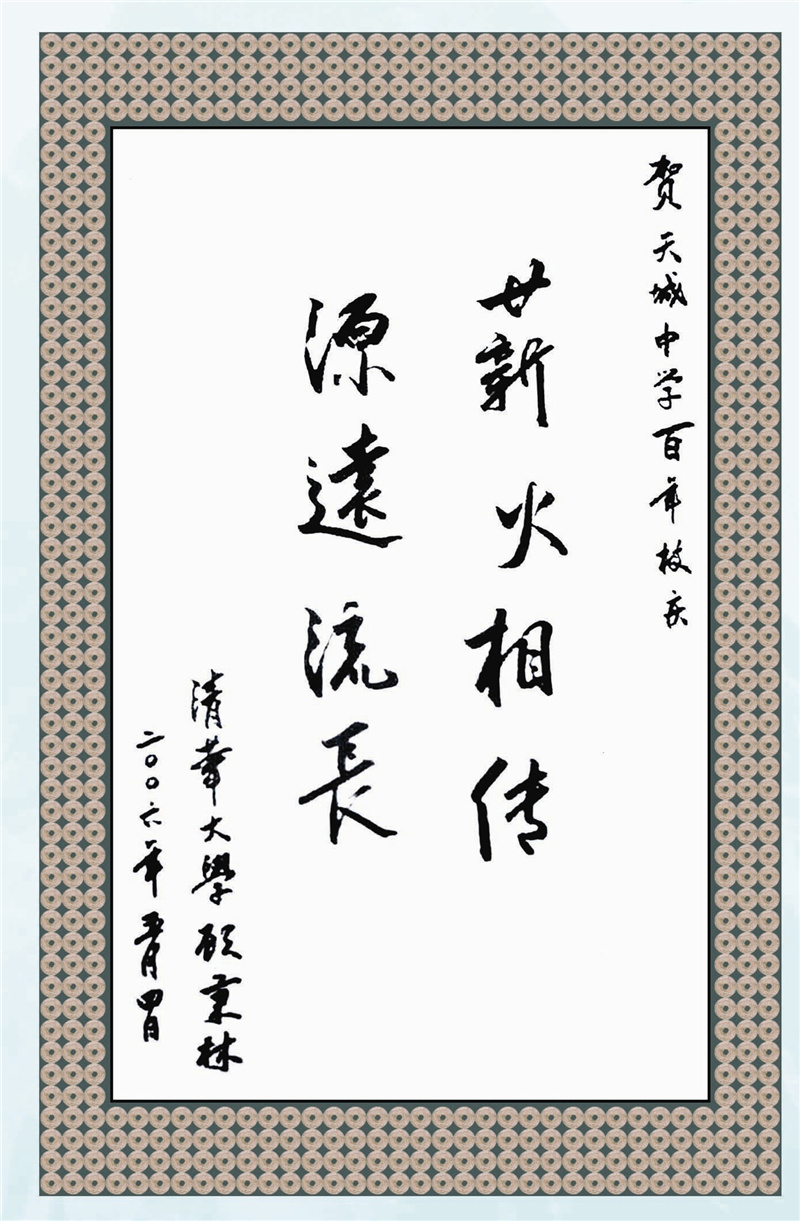 贺天城中学百年校庆
薪火相传
源遠流长
清華大學顧秉林
二〇〇六年五月四日